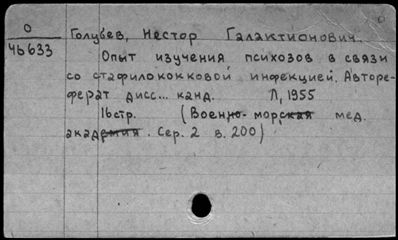 О
Чб633
Голубев, Нестор Галактионович.
Опыт изучения психозов в связи
со стафилококковой инфекцией. Авторе-
ферат дисс... канд. Л, 1955
16стр. (Военно-морская мед.
академия. Сер. 2 в. 200)